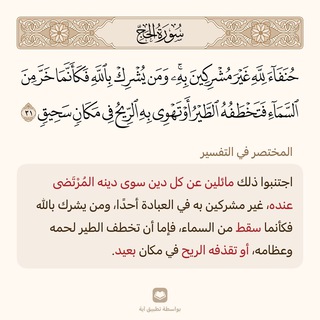 سُورَةُ الحَجِّ
حُنَفَآءَ لِلَّهِ غَيْرَ مُشْرِكِينَ بِهِۦۚ وَمَن يُشْرِكْ بِٱللَّهِ فَكَأَنَّمَا خَرَّ مِنَ
ٱلسَّمَآءِ فَتَخْطَفُهُ ٱلطَّيْرُ أَوْ تَهْوِى بِهِ ٱلرِّيحُ فِى مَكَانٍ سَحِيقٍ ٣١
المختصر في التفسير
اجتنبوا ذلك مائلين عن كل دين سوى دينه المُرْتَضى
عنده، غير مشركين به في العبادة أحدًا، ومن يشرك بالله
فكأنما سقط من السماء، فإما أن تخطف الطير لحمه
وعظامه، أو تقذفه الريح في مكان بعيد.
بواسطة تطبيق آية